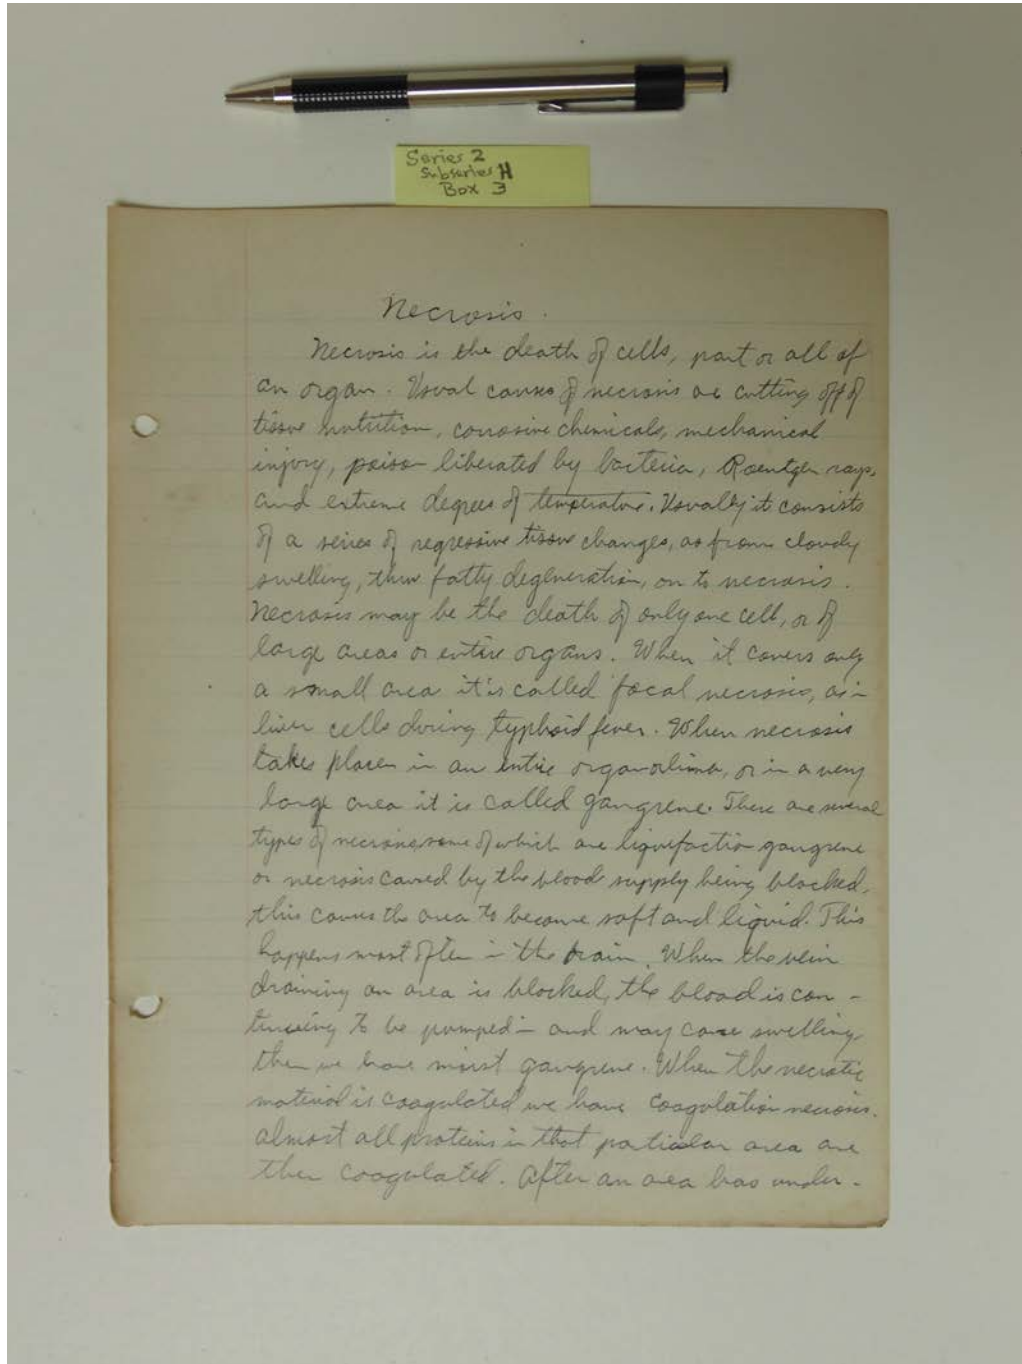 Series 2
Subseries H
Box 3
Necrosis.
Necrosis is the death of cells, part or all of
an organ. Usual causes of necrosis are cutting off of
tissue nutrition, corrosive chemicals, mechanical
injury, poison liberated by bacteria, Roentgen rays,
and extreme degrees of temperature. Usually it consists
of a series of regressive tissue changes, as from cloudy
swelling, thru fatty degeneration, on to necrosis.
Necrosis may be the death of only one cell, or of
large areas or entire organs. When it covers only
a small area it is called focal necrosis, as in
liver cells during typhoid fever. When necrosis
takes place in an entire organ or limb, or in a very
large area it is called gangrene. There are several
types of necrosis, some of which are liquefaction gangrene
or necrosis caused by the blood supply being blocked,
this causes the area to become soft and liquid. This
happens most often in the brain. When the vein
draining an area is blocked, the blood is con-
tinuing to be pumped in and may cause swelling
then we have moist gangrene. When the necrotic
material is coagulated we have coagulation necrosis.
almost all proteins in that particular area are
then coagulated. After an area has under-